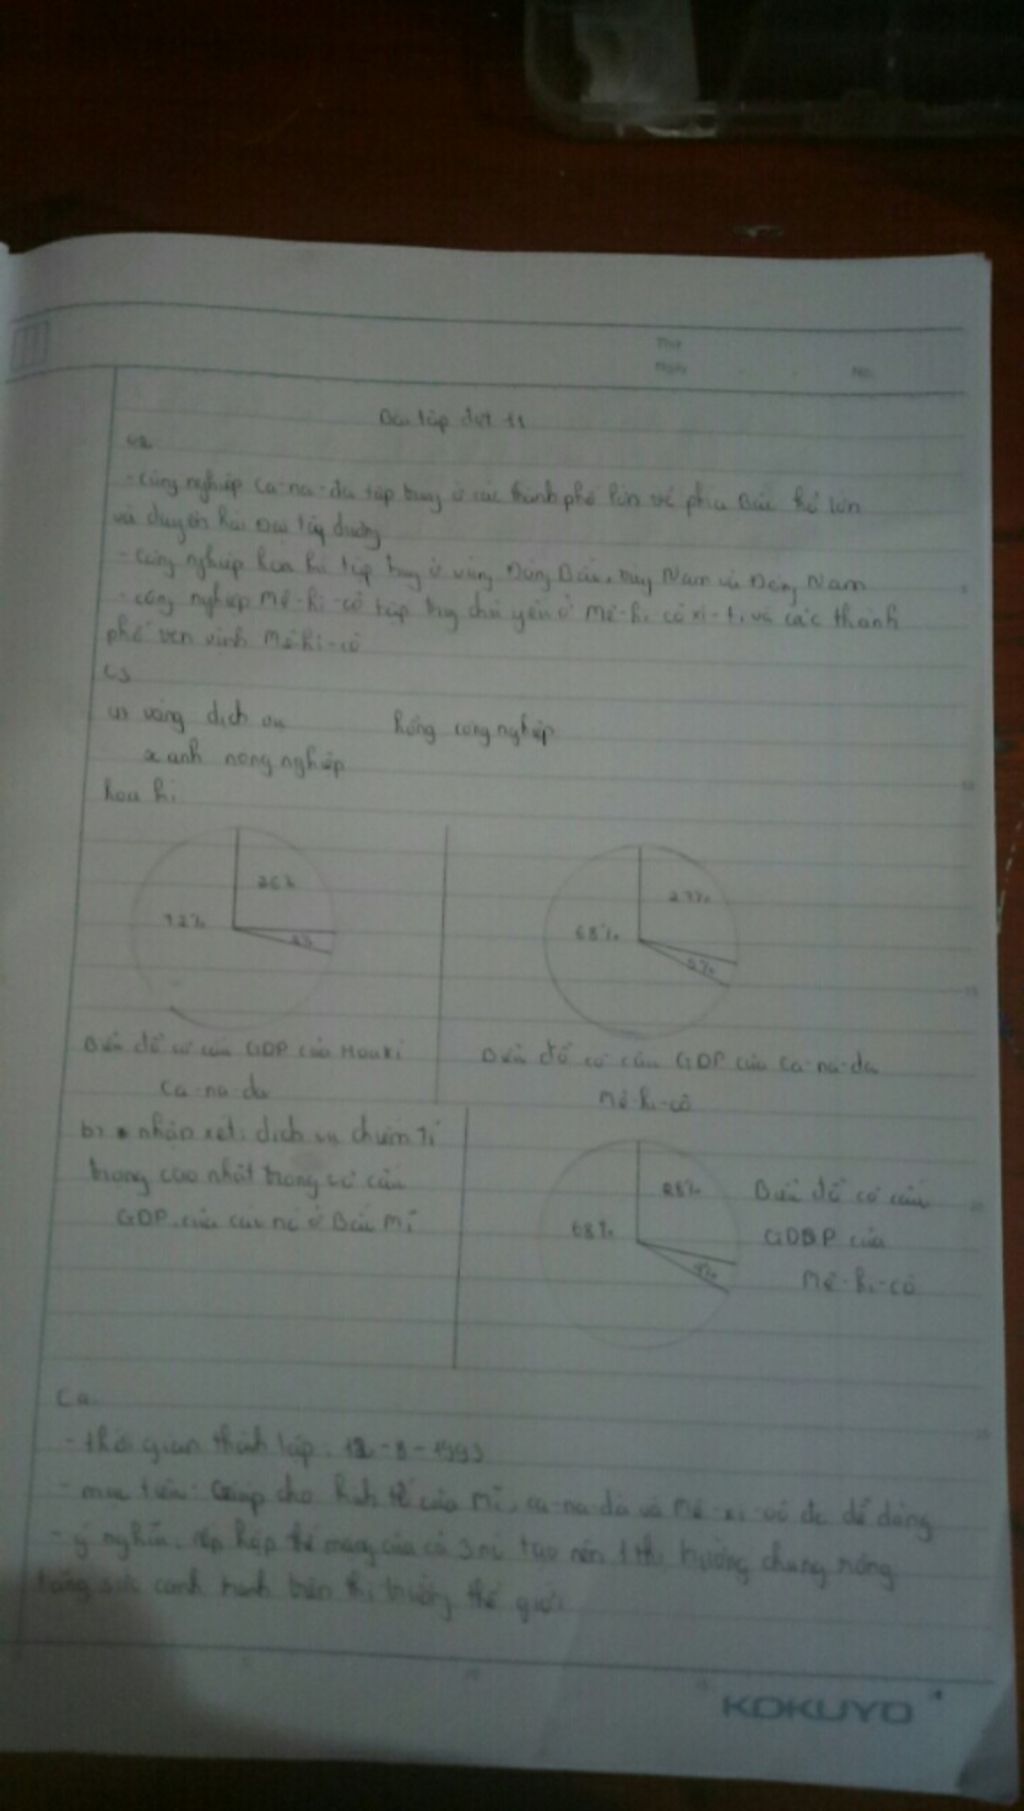 Bài tập đợt 11
c2
- Công nghiệp ca-na-đa tập trung ở các thành phố lớn về phía Bắc hồ lớn
và duyên hải Đại tây dương
- công nghiệp hoa kì tập trung ở vùng Đông Bắc, Tây Nam và Đông Nam
- công nghiệp mê-hi-cô tập trung chủ yếu ở mê-hi cô xi-ti và các thành
phố ven vịnh mêhi-cô
c3
a) vàng dịch vụ hồng công nghiệp
xanh nông nghiệp
hoa kì
72%
26%
2%
68%
27%
5%
Biểu đồ cơ cấu GDP của Hoa kì
Biểu đồ cơ cấu GDP của ca-na-da
ca-na-da
mê-hi-cô
b) nhận xét: dịch vụ chiếm tỉ
trong cao nhất trong cơ cấu
GDP của các nc ở Bắc mĩ
68%
28%
4%
Biểu đồ cơ cấu
của
mê-hi-cô
- thời gian thành lập:
- mục tiêu: Giúp cho kinh tế của mĩ, ca-na-da và dễ dàng
- ý nghĩa: kết hợp thế mạng của cả 3 nc tạo nên 1 thị trường chung rông
tăng sức canh tranh trên thị trường thế giới
KOKUYO